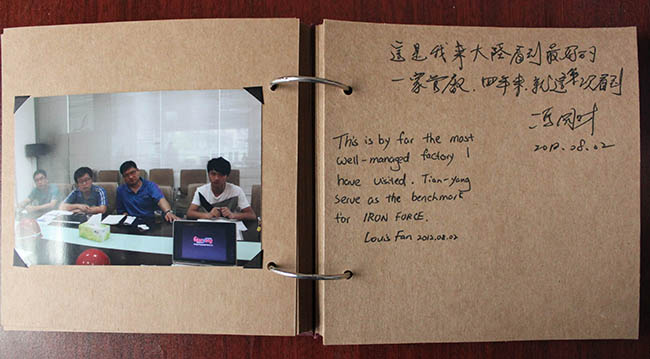 這是我來大陸看到最好的
一家管教.四年來.就這第次看到
2012.08.02
This is by far the most
well-managed factory I
have visited. Tian-yong
serve as the benchmark
for IRON FORCE.
Louis Fan 2012.08.02